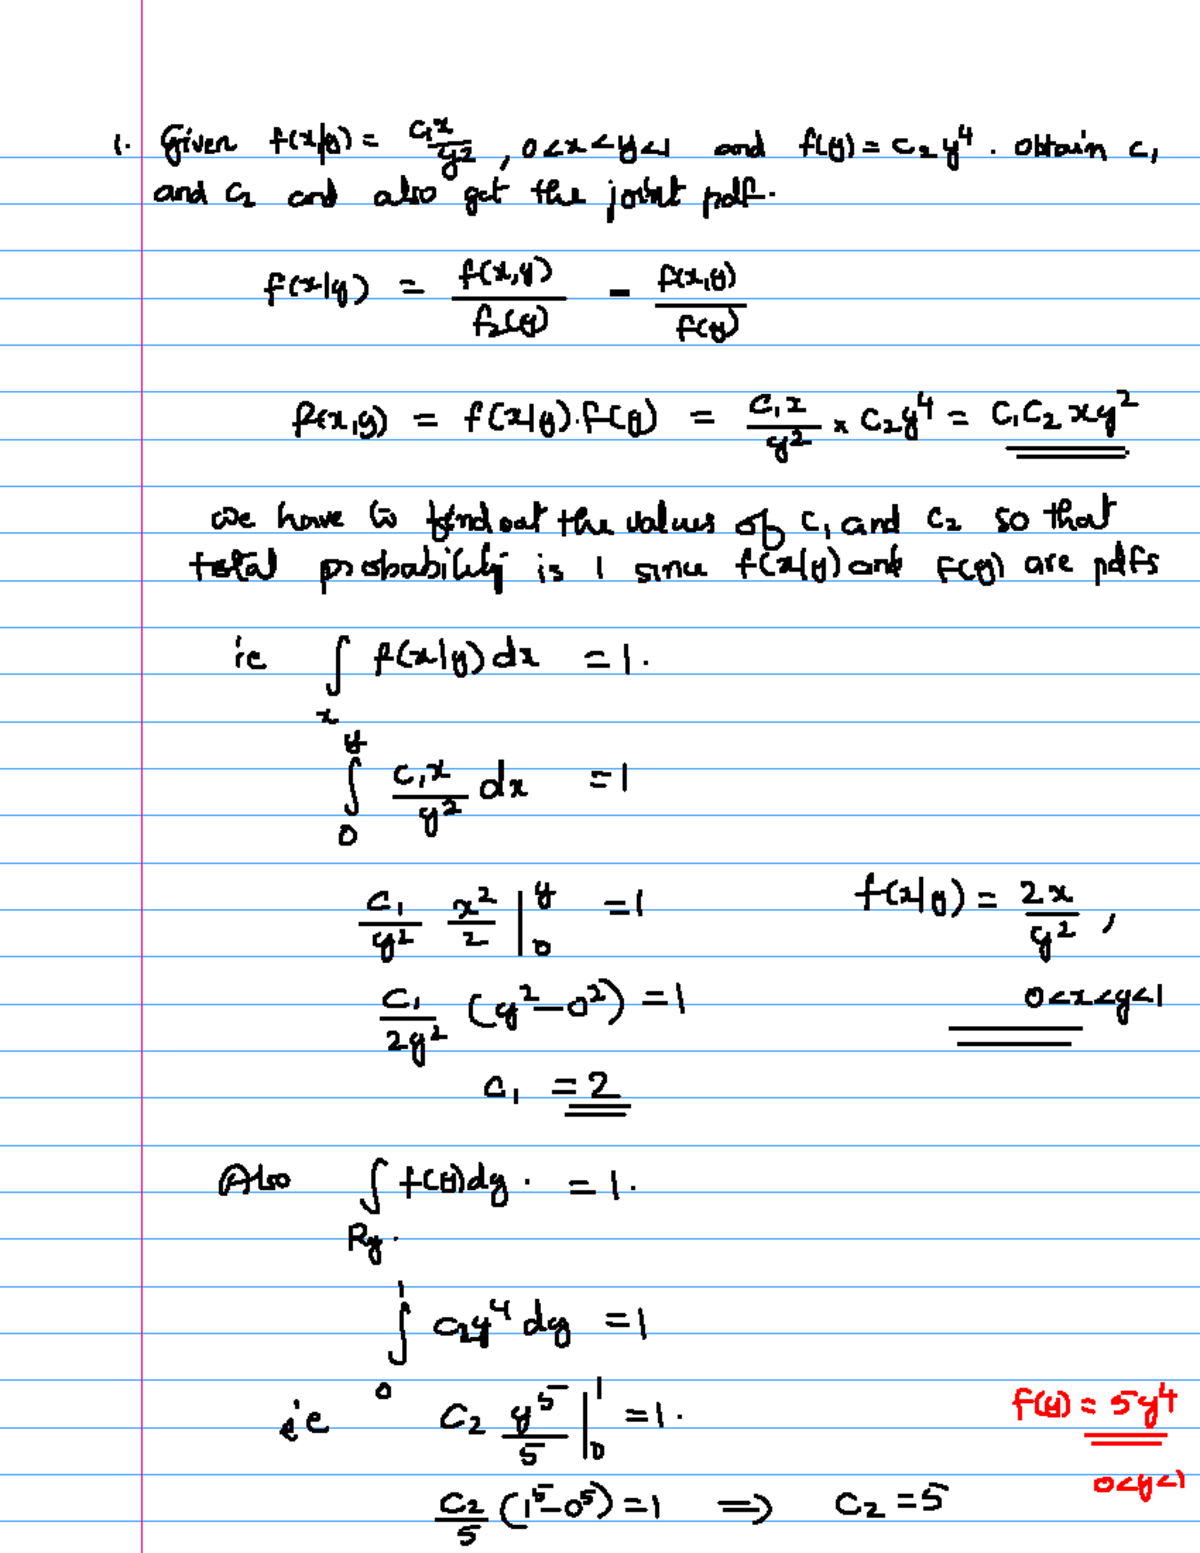 1. Given f(x|y) = c₁x/y², 0<x<y<1 and f(y) = c₂y⁴. obtain c₁
and c₂ and also get the joint pdf.
f(x|y) = f(x,y)/f₂(y) - f(x,y)/f(y)
f(x,y) = f(x|y).f(y) = c₁x/y² × c₂y⁴ = c₁c₂xy²
we have to find out the values of c₁ and c₂ so that
total probability is 1 since f(x|y) and f(y) are pdfs
ie ∫ₓ f(x|y) dx = 1.
∫₀^y c₁x/y² dx = 1
c₁/y² x²/2 |₀^y = 1 f(x|y) = 2x/y²,
c₁/2y² (y²-0²) = 1 0<x<y<1
c₁ = 2
Also ∫_Ry. f(y)dy. = 1.
∫₀¹ c₂y⁴ dy = 1
ie c₂ y⁵/5 |₀¹ = 1. f(y) = 5y⁴
c₂/5 (1⁵-0⁵) = 1 ⟹ c₂ = 5 0<y<1